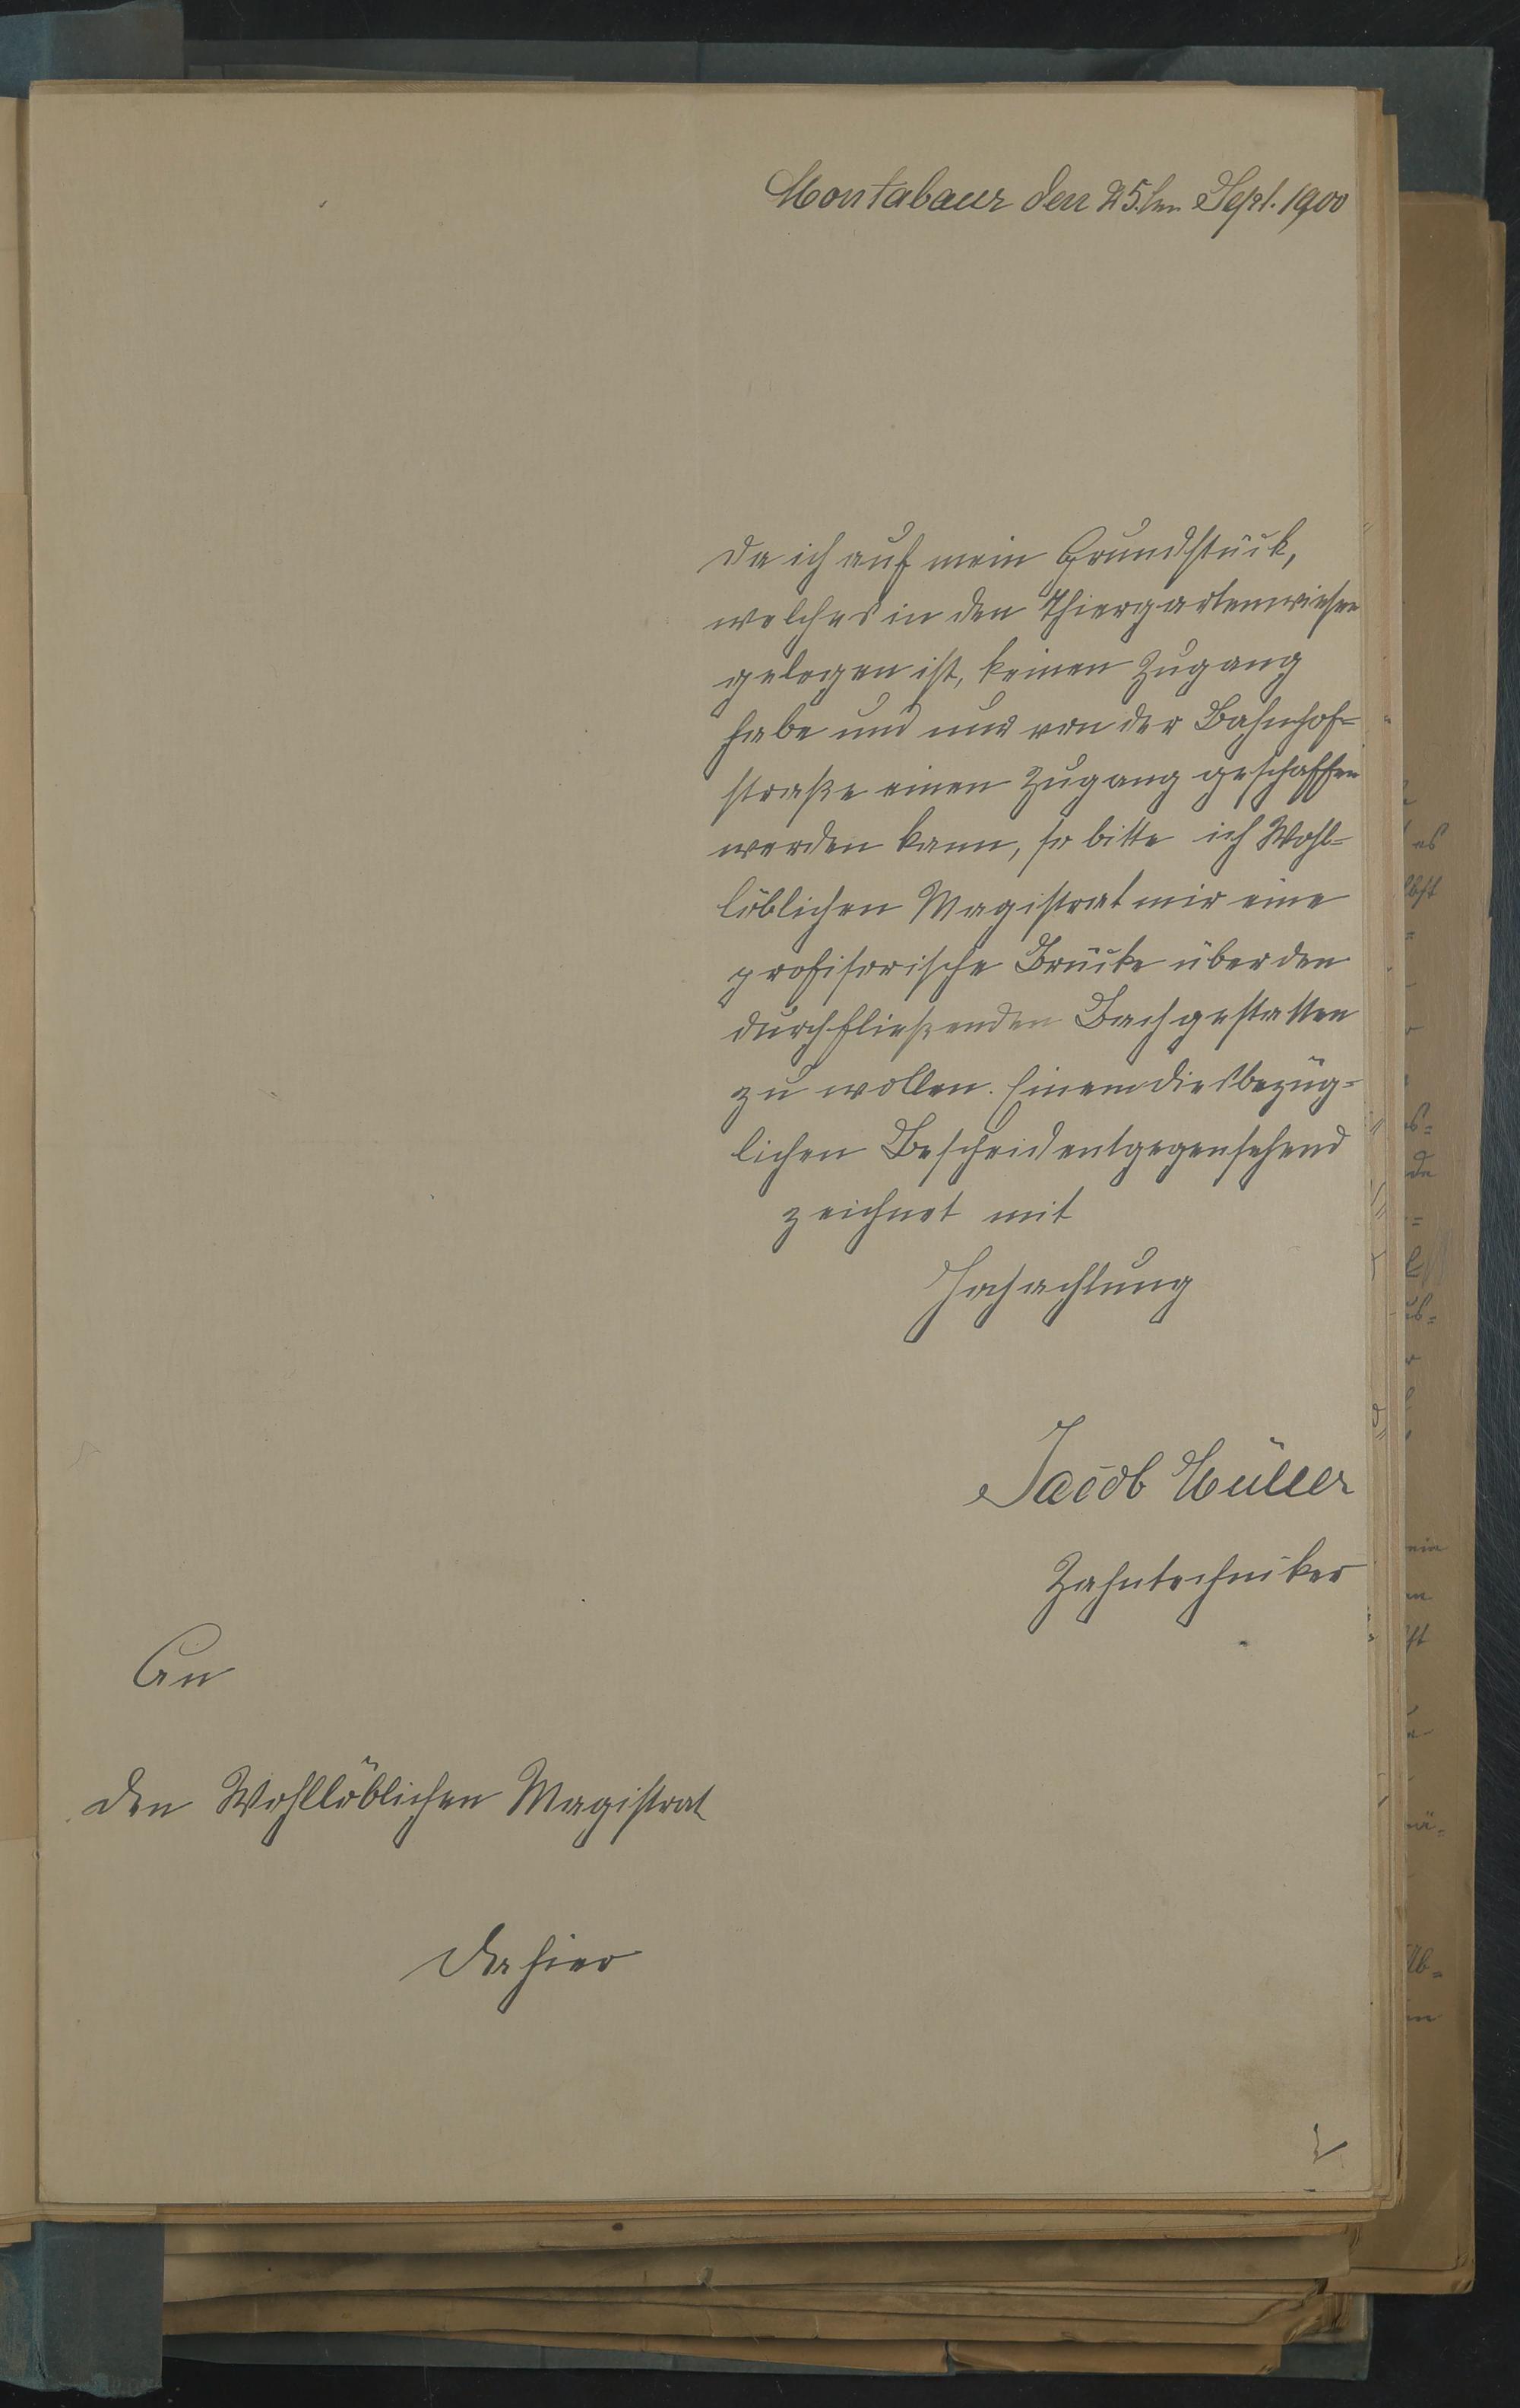 Montabaur den 25. ten Sept. 1900
Da ich auf mein Grundstück,
welches in den Thiergartenwiesen
gelegen ist, keinen Zugang
habe und nur von der Bahnhof=
straße einen Zugang geschaffen
werden kann, so bitte ich Wohl=
löblichen Magistrat mir eine
profisorische Brücke über den
durchfließenden Bach gestatten
zu wollen. Einem diesbezüg=
lichen Bescheid entgegensehend
zeichnet mit
Hochachtung
Jacob Müller
Zahntechniker
An
den Wohllöblichen Magistrat
Dahier